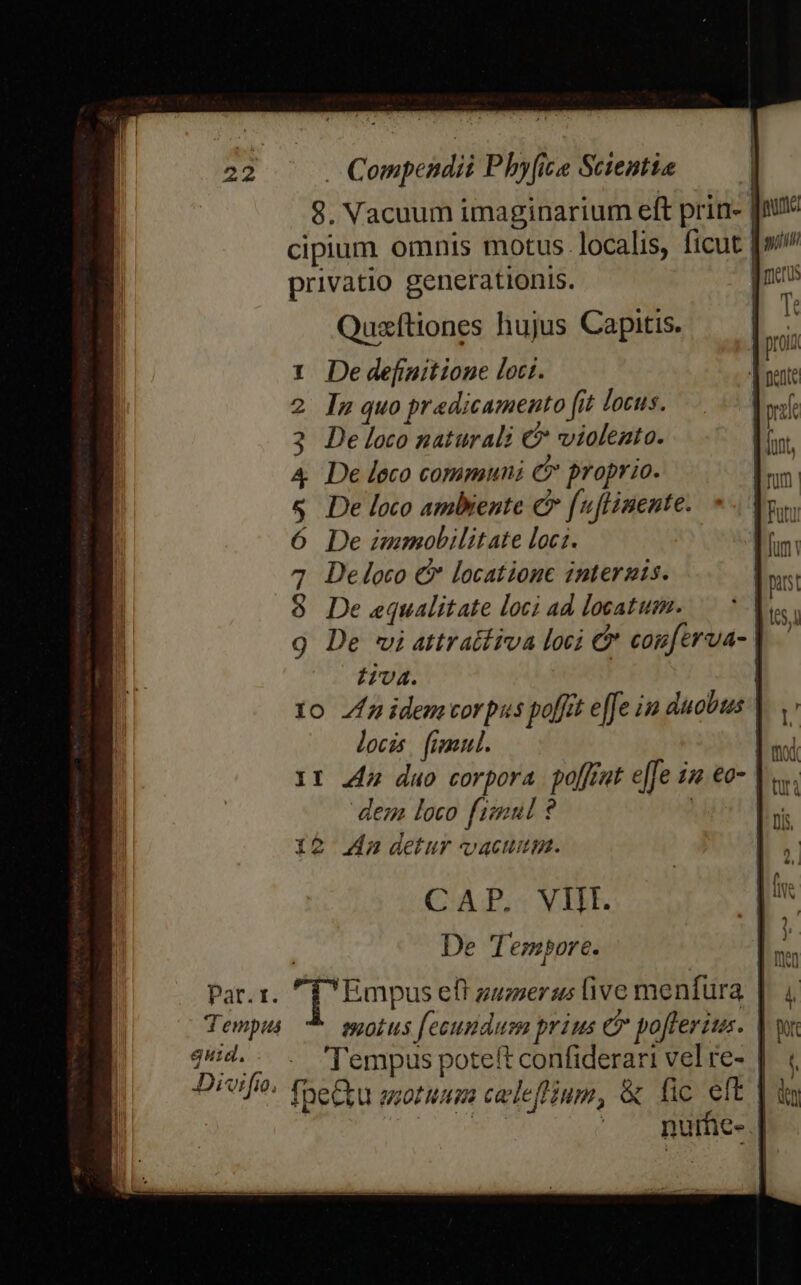 22 Compendii Phyſicæ Scientiæ
8. Vacuum imaginarium eſt prin-
cipium omnis motus localis, ſicut
privatio generationis.
Quæſtiones hujus Capitis.
1 De definitione loci.
2 In quo prædicamento ſit locus.
3 De loco naturali & violento.
4 De loco communi & proprio.
5 De loco ambiente & ſuſtinente.
6 De immobilitate loci.
7 De loco & locatione internis.
8 De æqualitate loci ad locatum.
9 De vi attractiva loci & conſerva-
tiva.
10 An idem corpus poſſit eſſe in duobus
locis ſimul.
11 An duo corpora poſſint eſſe in eo-
dem loco ſimul ?
12 An detur vacuum.
CAP. VIII.
De Tempore.
Par. 1. TEmpus eſt numerus ſive menſura
Tempus motus ſecundum prius & poſterius.
quid. Tempus poteſt conſiderari vel re-
Diviſio. ſpectu motuum cæleſtium, & ſic eſt
nume-